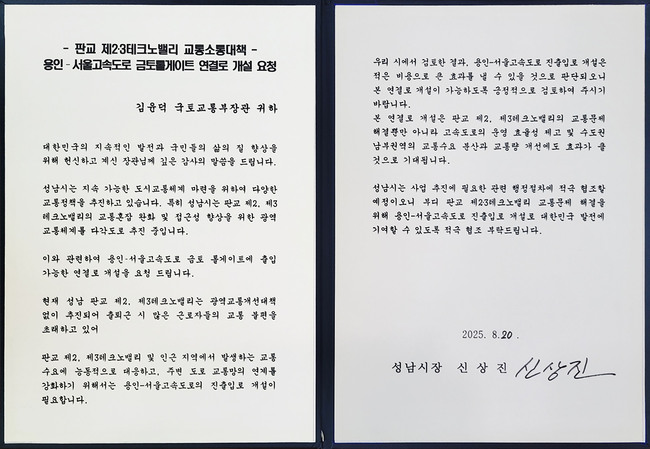 - 판교 제2·3테크노밸리 교통소통대책 -
용인 - 서울고속도로 금토톨게이트 연결로 개설 요청
김윤덕 국토교통부장관 귀하
대한민국의 지속적인 발전과 국민들의 삶의 질 향상을
위해 헌신하고 계신 장관님께 깊은 감사의 말씀을 드립니다.
성남시는 지속 가능한 도시교통체계 마련을 위하여 다양한
교통정책을 추진하고 있습니다. 특히 성남시는 판교 제2, 제3
테크노밸리의 교통혼잡 완화 및 접근성 향상을 위한 광역
교통체계를 다각도로 추진 중입니다.
이와 관련하여 용인-서울고속도로 금토 톨게이트에 출입
가능한 연결로 개설을 요청 드립니다.
현재 성남 판교 제2, 제3테크노밸리는 광역교통개선대책
없이 추진되어 출퇴근 시 많은 근로자들의 교통 불편을
초래하고 있어
판교 제2, 제3테크노밸리 및 인근 지역에서 발생하는 교통
수요에 능동적으로 대응하고, 주변 도로 교통망의 연계를
강화하기 위해서는 용인-서울고속도로의 진출입로 개설이
필요합니다.
우리 시에서 검토한 결과, 용인-서울고속도로 진출입로 개설은
적은 비용으로 큰 효과를 낼 수 있을 것으로 판단되오니
본 연결로 개설이 가능하도록 긍정적으로 검토하여 주시기
바랍니다.
본 연결로 개설은 판교 제2, 제3테크노밸리의 교통문제
해결뿐만 아니라 고속도로의 운영 효율성 제고 및 수도권
남부권역의 교통수요 분산과 교통량 개선에도 효과가 클
것으로 기대됩니다.
성남시는 사업 추진에 필요한 관련 행정절차에 적극 협조할
예정이오니 부디 판교 제2·3테크노밸리 교통문제 해결을
위해 용인-서울고속도로 진출입로 개설로 대한민국 발전에
기여할 수 있도록 적극 협조 부탁드립니다.
2025. 8. 20.
성남시장 신상진 신상진